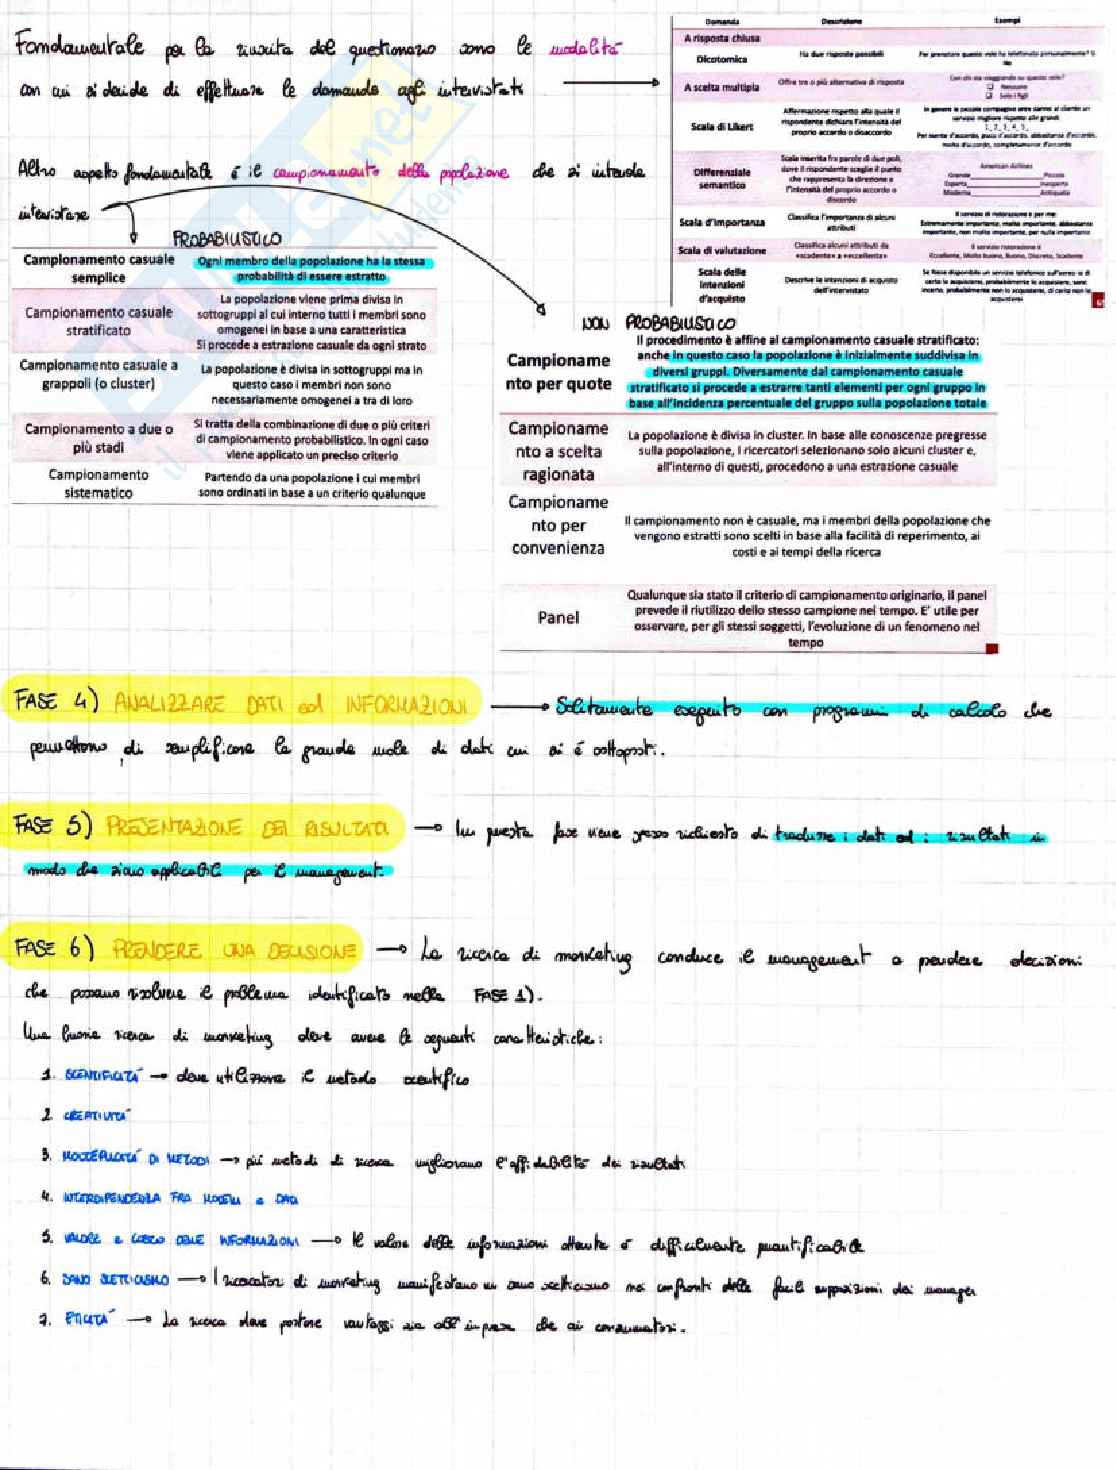 Fondamentale per la riuscita del questionario sono le modalità
con cui si decide di effettuare le domande agli intervistati
Domanda Descrizione Esempi
A risposta chiusa
Dicotomica Ha due risposte possibili
A scelta multipla Offre tre o più alternative di risposta
Con chi sta viaggiando su questo volo?
Nessuno
Solo i figli
Scala di Likert
Affermazione rispetto alla quale il
rispondente dichiara l'intensità del
proprio accordo o disaccordo
Differenziale
semantico
Scala inserita fra parole di due poli,
dove il rispondente sceglie il punto
che rappresenta la direzione e
l'intensità del proprio accordo o
disaccordo
American Airlines
Grande Piccola
Esperta Inesperta
Moderna Antiquata
Scala d'importanza
Classifica l'importanza di alcuni
attributi
Il servizio di ristorazione è per me:
Estremamente importante, molto importante, abbastanza
importante, non molto importante, per nulla importante
Scala di valutazione
Classifica alcuni attributi da
«scadente» a «eccellente»
Il servizio ristorazione è
Eccellente, Molto buono, Buono, Discreto, Scadente
Scala delle
intenzioni
d'acquisto
Descrive le intenzioni di acquisto
dell'intervistato
Altro aspetto fondamentale è il campionamento della popolazione che si intende
intervistare
PROBABILISTICO
Campionamento casuale
semplice
Ogni membro della popolazione ha la stessa
probabilità di essere estratto
Campionamento casuale
stratificato
La popolazione viene prima divisa in
sottogruppi al cui interno tutti i membri sono
omogenei in base a una caratteristica
Si procede a estrazione casuale da ogni strato
Campionamento casuale a
grappoli (o cluster)
La popolazione è divisa in sottogruppi ma in
questo caso i membri non sono
necessariamente omogenei a tra di loro
Campionamento a due o
più stadi
Si tratta della combinazione di due o più criteri
di campionamento probabilistico. In ogni caso
viene applicato un preciso criterio
Campionamento
sistematico
Partendo da una popolazione i cui membri
sono ordinati in base a un criterio qualunque
NON PROBABILISTICO
Campioname
nto per quote
Il procedimento è affine al campionamento casuale stratificato:
anche in questo caso la popolazione è inizialmente suddivisa in
diversi gruppi. Diversamente dal campionamento casuale
stratificato si procede a estrarre tanti elementi per ogni gruppo in
base all'incidenza percentuale del gruppo sulla popolazione totale
Campioname
nto a scelta
ragionata
La popolazione è divisa in cluster. In base alle conoscenze pregresse
sulla popolazione, i ricercatori selezionano solo alcuni cluster e,
all'interno di questi, procedono a una estrazione casuale
Campioname
nto per
convenienza
Il campionamento non è casuale, ma i membri della popolazione che
vengono estratti sono scelti in base alla facilità di reperimento, ai
costi e ai tempi della ricerca
Panel
Qualunque sia stato il criterio di campionamento originario, il panel
prevede il riutilizzo dello stesso campione nel tempo. E' utile per
osservare, per gli stessi soggetti, l'evoluzione di un fenomeno nel
tempo
FASE 4) ANALIZZARE DATI ed INFORMAZIONI → Solitamente eseguito con programmi di calcolo che
permettono di semplificare la grande mole di dati cui si è sottoposti.
FASE 5) PRESENTAZIONE DEI RISULTATI → In questa fase viene spesso richiesto di tradurre i dati ed i risultati in
modo che siano applicabili per il management.
FASE 6) PRENDERE UNA DECISIONE → La ricerca di marketing conduce il management a prendere decisioni
che possano risolvere il problema identificato nella FASE 1).
Una buona ricerca di marketing deve avere le seguenti caratteristiche:
1. SCIENTIFICITÀ → deve utilizzare il metodo scientifico
2. CREATIVITÀ
3. MOLTEPLICITÀ DI METODI → più metodi di ricerca migliorano l'affidabilità dei risultati
4. INTERDIPENDENZA FRA MODELLI e DATI
5. VALORE e COSTO DELLE INFORMAZIONI → Il valore delle informazioni ottenute è difficilmente quantificabile
6. SANO SCETTICISMO → I ricercatori di marketing manifestano un sano scetticismo nei confronti delle facili supposizioni dei manager
7. ETICITÀ → La ricerca deve portare vantaggi sia all'impresa che ai consumatori.